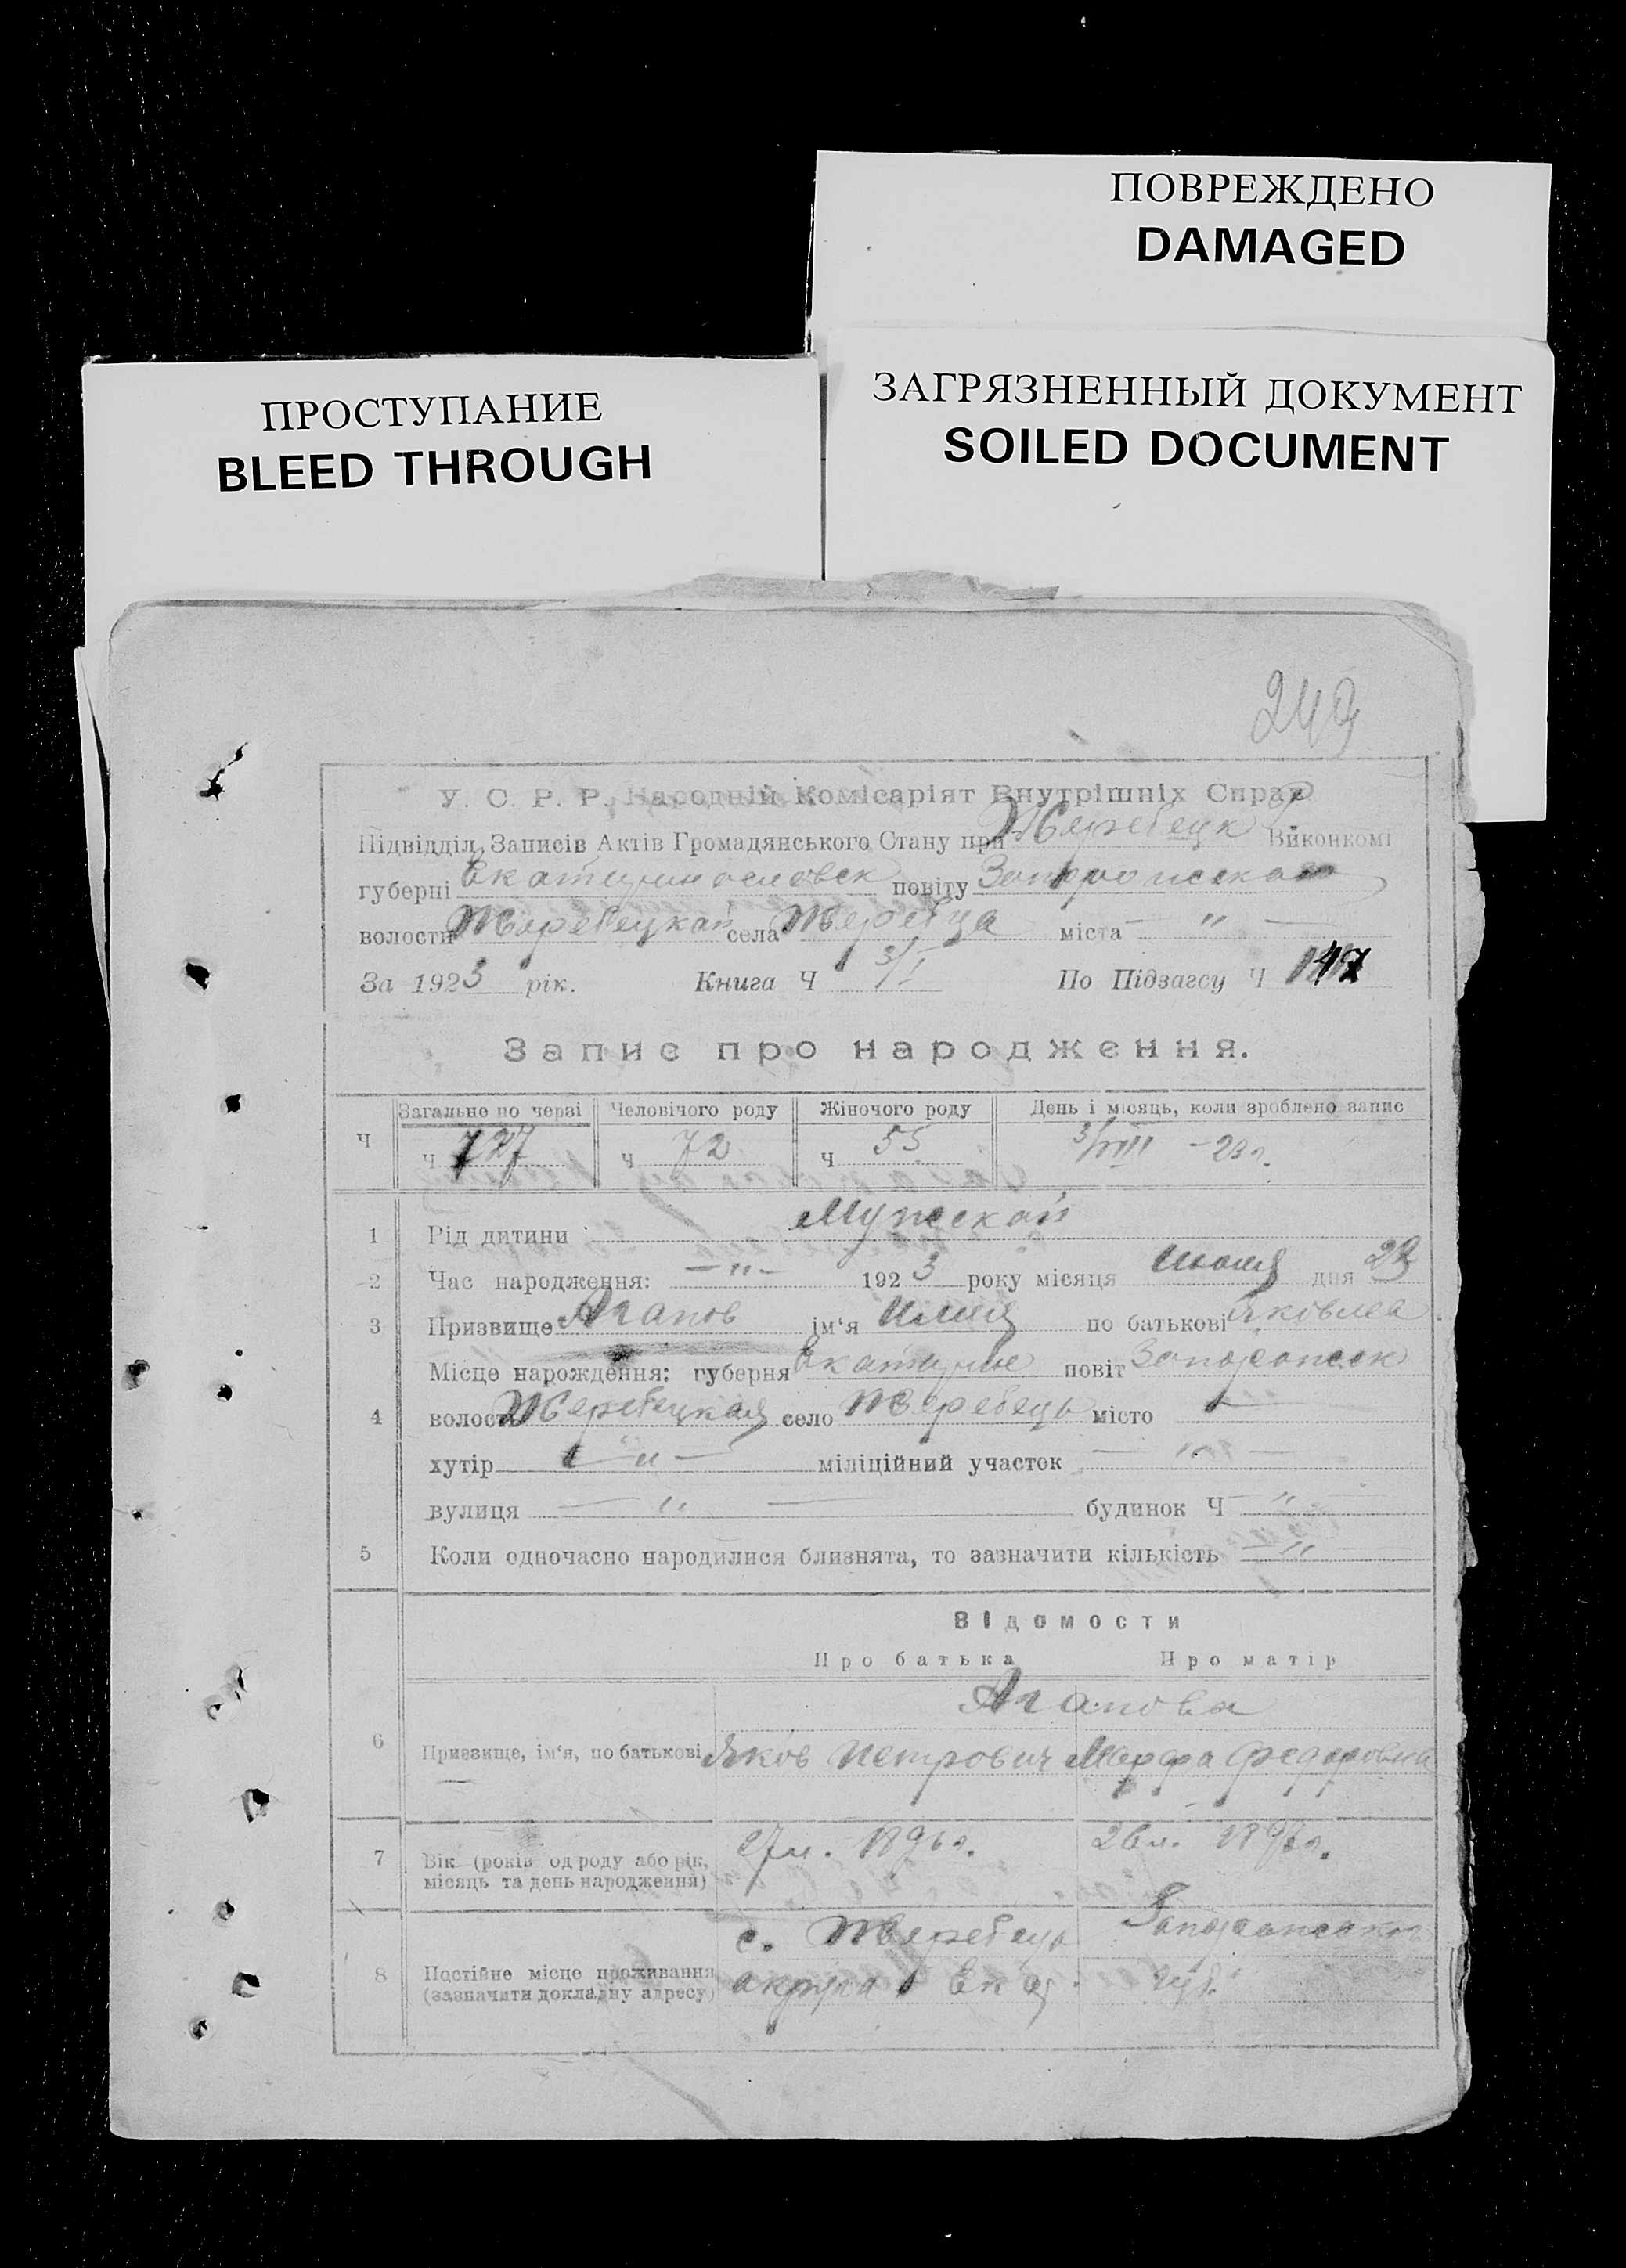 ПОВРЕЖДЕНО
DAMAGED
ПРОСТУПАНИЕ
BLEED THROUGH
ЗАГРЯЗНЕННЫЙ ДОКУМЕНТ
SOILED DOCUMENT
249
У. С. Р. Р. Народній Комісаріят Внутрішніх Справ
Підвідділ Записів Актів Громадянського Стану при Жеребецк Виконкомі
губерні Екатеринославск повіту Запорожского
волости Жеребецкой села Жеребца міста — " —
За 1923 рік. Книга Ч 3/I По Підзагсу Ч 147
Запис про народження.
Загальне по черзі Человічого роду Жіночого роду День і місяць, коли зроблено запис
Ч Ч 127 Ч 72 Ч 55 3/VIII - 23 г.
1 Рід дитини Мужской
2 Час народження: — " — 1923 року місяця Июля дня 23
3 Призвище Агапов ім'я Илия по батькові Яковлев
Місце народження: губерня Екатерин повіт Запорожск
4 волость Жеребецкая село Жеребець місто —
хутір — " — міліційний участок — " —
вулиця — " — будинок Ч — " —
5 Коли одночасно народилися близнята, то зазначити кількість — " —
Відомости
Про батька Про матір
Агаповы
6 Призвище, ім'я, по батькові Яков Петрович Марфа Федоровна
7 Вік (років од роду або рік, місяць та день народження) 27 л. 1896 г. 26 л. 1897 г.
8 Постійне місце проживання (зазначити докладну адресу)
с. Жеребець Запорожского
округа Екат. губ.